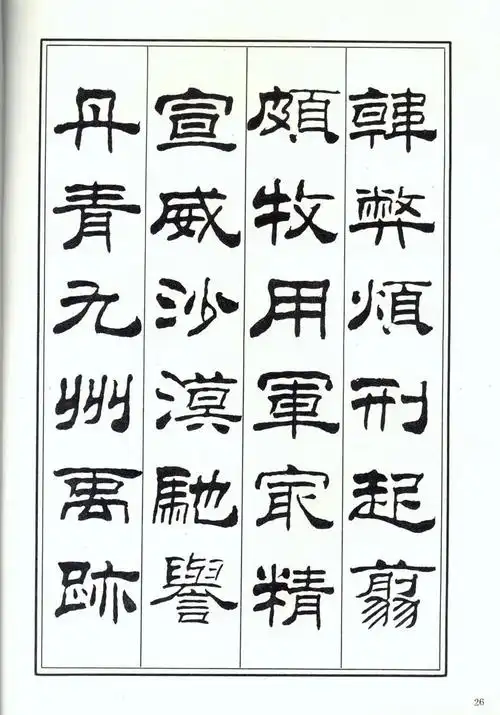 韓弊煩刑起翦
頗牧用軍㝡精
宣威沙漠馳譽
丹青九州禹跡
26